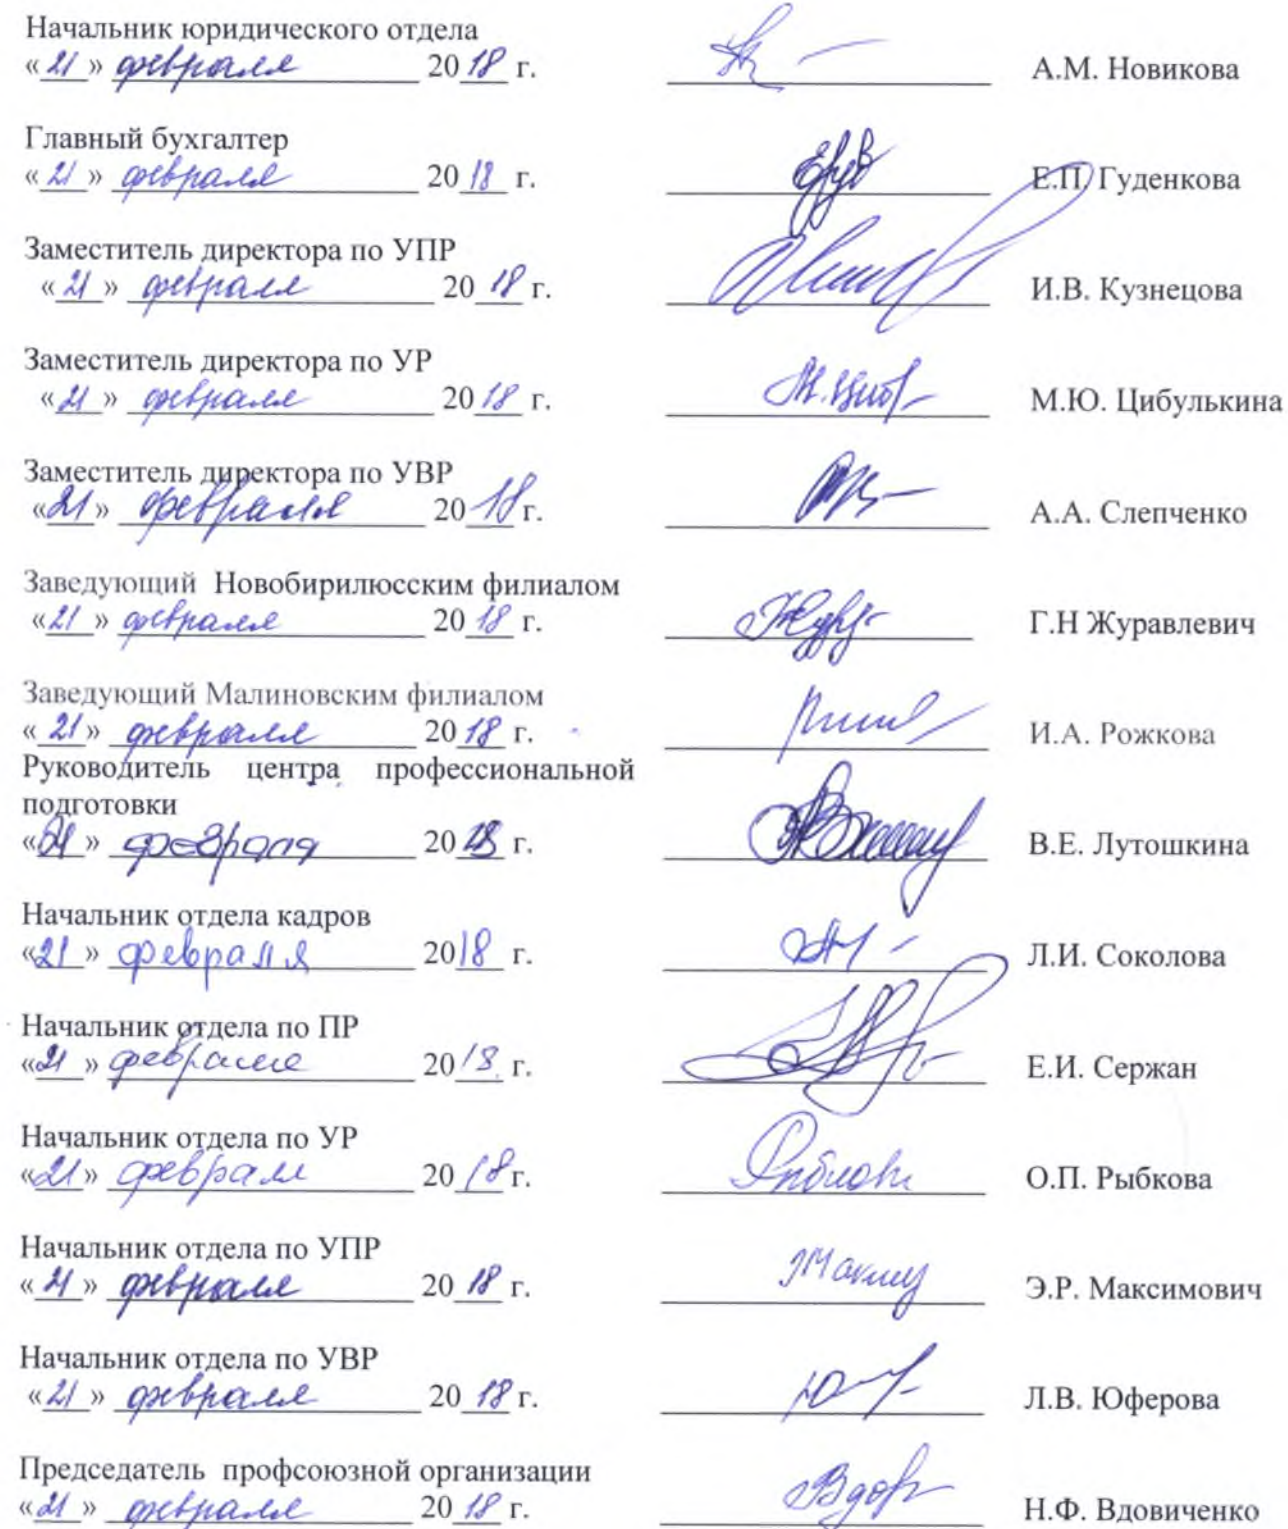 Начальник юридического отдела
«21» февраля 2018 г. А.М. Новикова
Главный бухгалтер
«21» февраля 2018 г. Е.П. Гуденкова
Заместитель директора по УПР
«21» февраля 2018 г. И.В. Кузнецова
Заместитель директора по УР
«21» февраля 2018 г. М.Ю. Цибулькина
Заместитель директора по УВР
«21» февраля 2018 г. А.А. Слепченко
Заведующий Новобирилюсским филиалом
«21» февраля 2018 г. Г.Н Журавлевич
Заведующий Малиновским филиалом
«21» февраля 2018 г. И.А. Рожкова
Руководитель центра профессиональной
подготовки
«21» февраля 2018 г. В.Е. Лутошкина
Начальник отдела кадров
«21» февраля 2018 г. Л.И. Соколова
Начальник отдела по ПР
«21» февраля 2018 г. Е.И. Сержан
Начальник отдела по УР
«21» февраля 2018 г. О.П. Рыбкова
Начальник отдела по УПР
«21» февраля 2018 г. Э.Р. Максимович
Начальник отдела по УВР
«21» февраля 2018 г. Л.В. Юферова
Председатель профсоюзной организации
«21» февраля 2018 г. Н.Ф. Вдовиченко